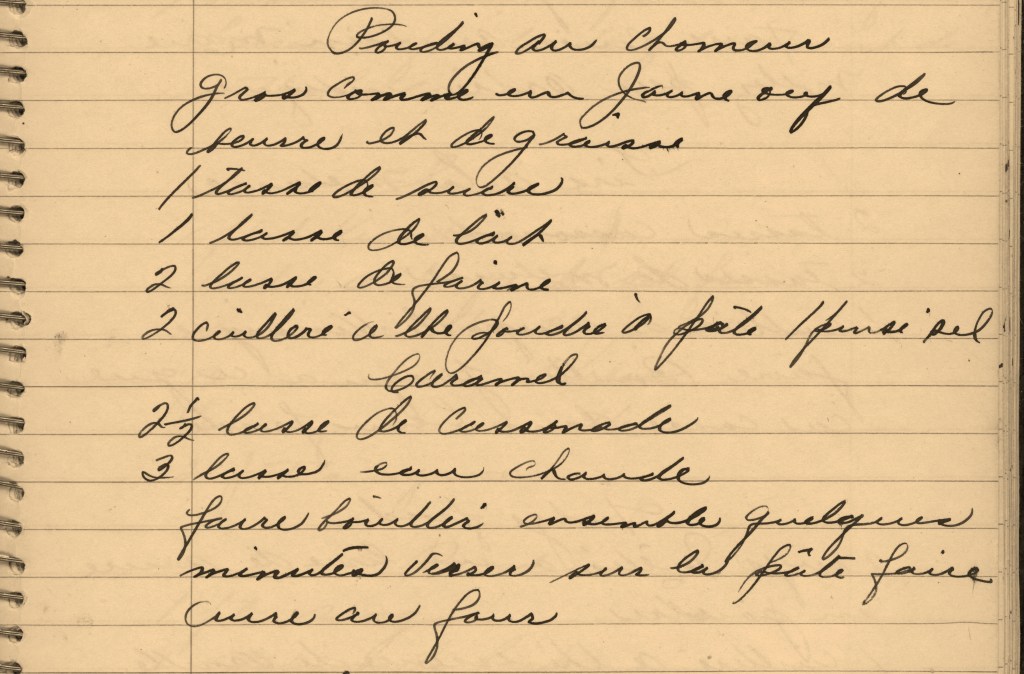 Pouding au Chomeur
Gros comme un Jaune oeuf de
beurre et de graisse
1 tasse de sucre
1 tasse de lait
2 tasse de farine
2 cuilleré a thé poudre à pâte 1 pinsé sel
Caramel
2 1/2 tasse de Cassonade
3 tasse eau chaude
faire bouillir ensemble quelques
minutes verser sur la pâte faire
cuire au four